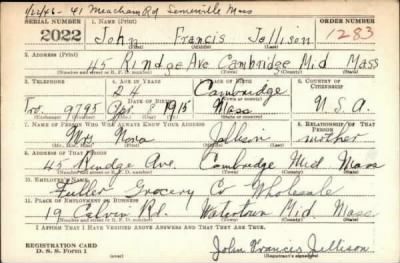 1/22/46 - 41 Meacham Rd Somerville Mass
SERIAL NUMBER 1. NAME (Print) ORDER NUMBER
2022 John Francis Jellison 1283
(First) (Middle) (Last)
2. ADDRESS (Print)
45 Rindge Ave Cambridge Mid Mass
(Number and street or R. F. D. number) (Town) (County) (State)
3. TELEPHONE 4. AGE IN YEARS 5. PLACE OF BIRTH 6. COUNTRY OF CITIZENSHIP
24 Cambridge
DATE OF BIRTH (Town or county)
Tro. 9795 8 1915 Mass U.S.A.
(Exchange) (Number) (Mo.) (Day) (Yr.) (State or country)
7. NAME OF PERSON WHO WILL ALWAYS KNOW YOUR ADDRESS 8. RELATIONSHIP OF THAT PERSON
Mrs Nora Jellison mother
(Mr., Mrs., Miss) (First) (Middle) (Last)
9. ADDRESS OF THAT PERSON
45 Rindge Ave. Cambridge Mid Mass
(Number and street or R. F. D. number) (Town) (County) (State)
10. EMPLOYER'S NAME
Fuller Grocery Co Wholesale
11. PLACE OF EMPLOYMENT OR BUSINESS
19 Calvin Rd. Watertown Mid. Mass
(Number and street or R. F. D. number) (Town) (County) (State)
I AFFIRM THAT I HAVE VERIFIED ABOVE ANSWERS AND THAT THEY ARE TRUE.
REGISTRATION CARD
D. S. S. Form 1 John Francis Jellison